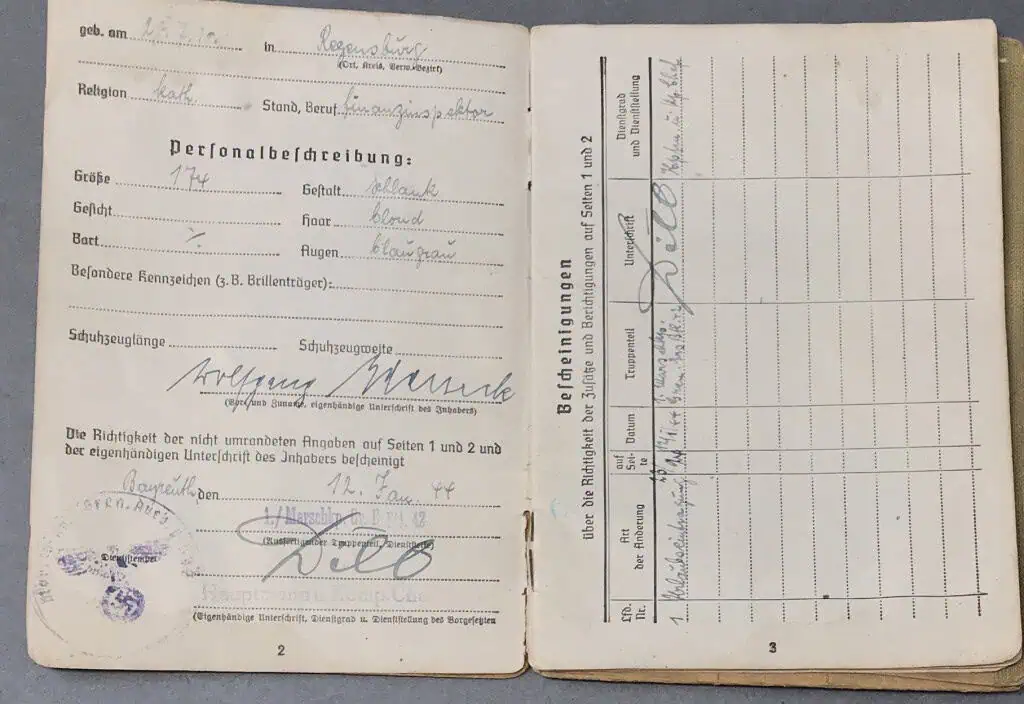 geb. am in Regensburg
(Ort, Kreis, Verw.-Bezirk)
Religion kath. Stand, Beruf Finanzinspektor
Personalbeschreibung:
Größe 174 Gestalt schlank
Gesicht Haar blond
Bart ∕. Augen blaugrau
Besondere Kennzeichen (z. B. Brillenträger):
Schuhzeuglänge Schuhzeugweite
Wolfgang
(Vor- und Zuname, eigenhändige Unterschrift des Inhabers)
Die Richtigkeit der nicht umrandeten Angaben auf Seiten 1 und 2 und
der eigenhändigen Unterschrift des Inhabers bescheinigt
Bayreuth, den 12. Jan. 44
(Ausfertigender Truppenteil, Dienststelle)
Dienststempel
Hauptmann u. Komp.
(Eigenhändige Unterschrift, Dienstgrad u. Dienststellung des Vorgesetzten
2
Bescheinigungen
über die Richtigkeit der Zusätze und Berichtigungen auf Seiten 1 und 2
Lfd. Nr.
Art der Änderung
auf Seite
Datum
Truppenteil
Unterschrift
Dienstgrad und Dienststellung
1
3